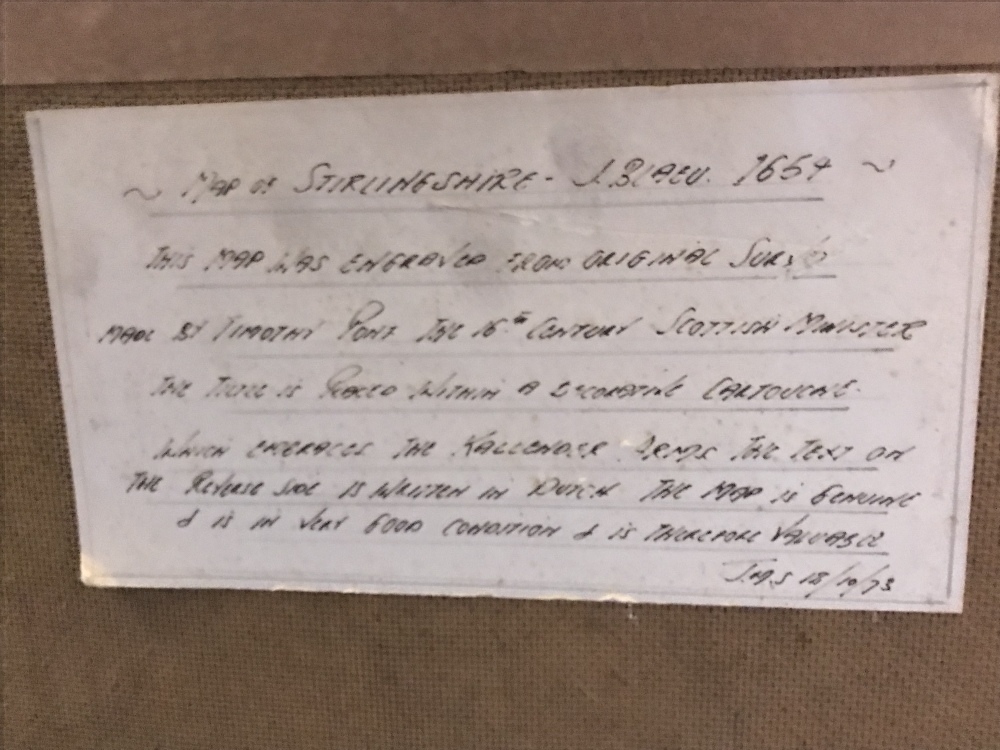 ~ MAP OF STIRLINGSHIRE - J. BLAEU. 1654 ~
THIS MAP WAS ENGRAVED FROM ORIGINAL SURVEY
MADE BY TIMOTHY PONT THE 16TH CENTURY SCOTTISH MINISTER
THE TITLE IS PLACED WITHIN A DECORATIVE CARTOUCHE.
WHICH EMBRACES THE KALLENDER ARMS THE TEXT ON
THE REVERSE SIDE IS WRITTEN IN DUTCH THE MAP IS GENUINE
& IS IN VERY GOOD CONDITION & IS THEREFORE VALUABLE
J.M.S 18/10/73